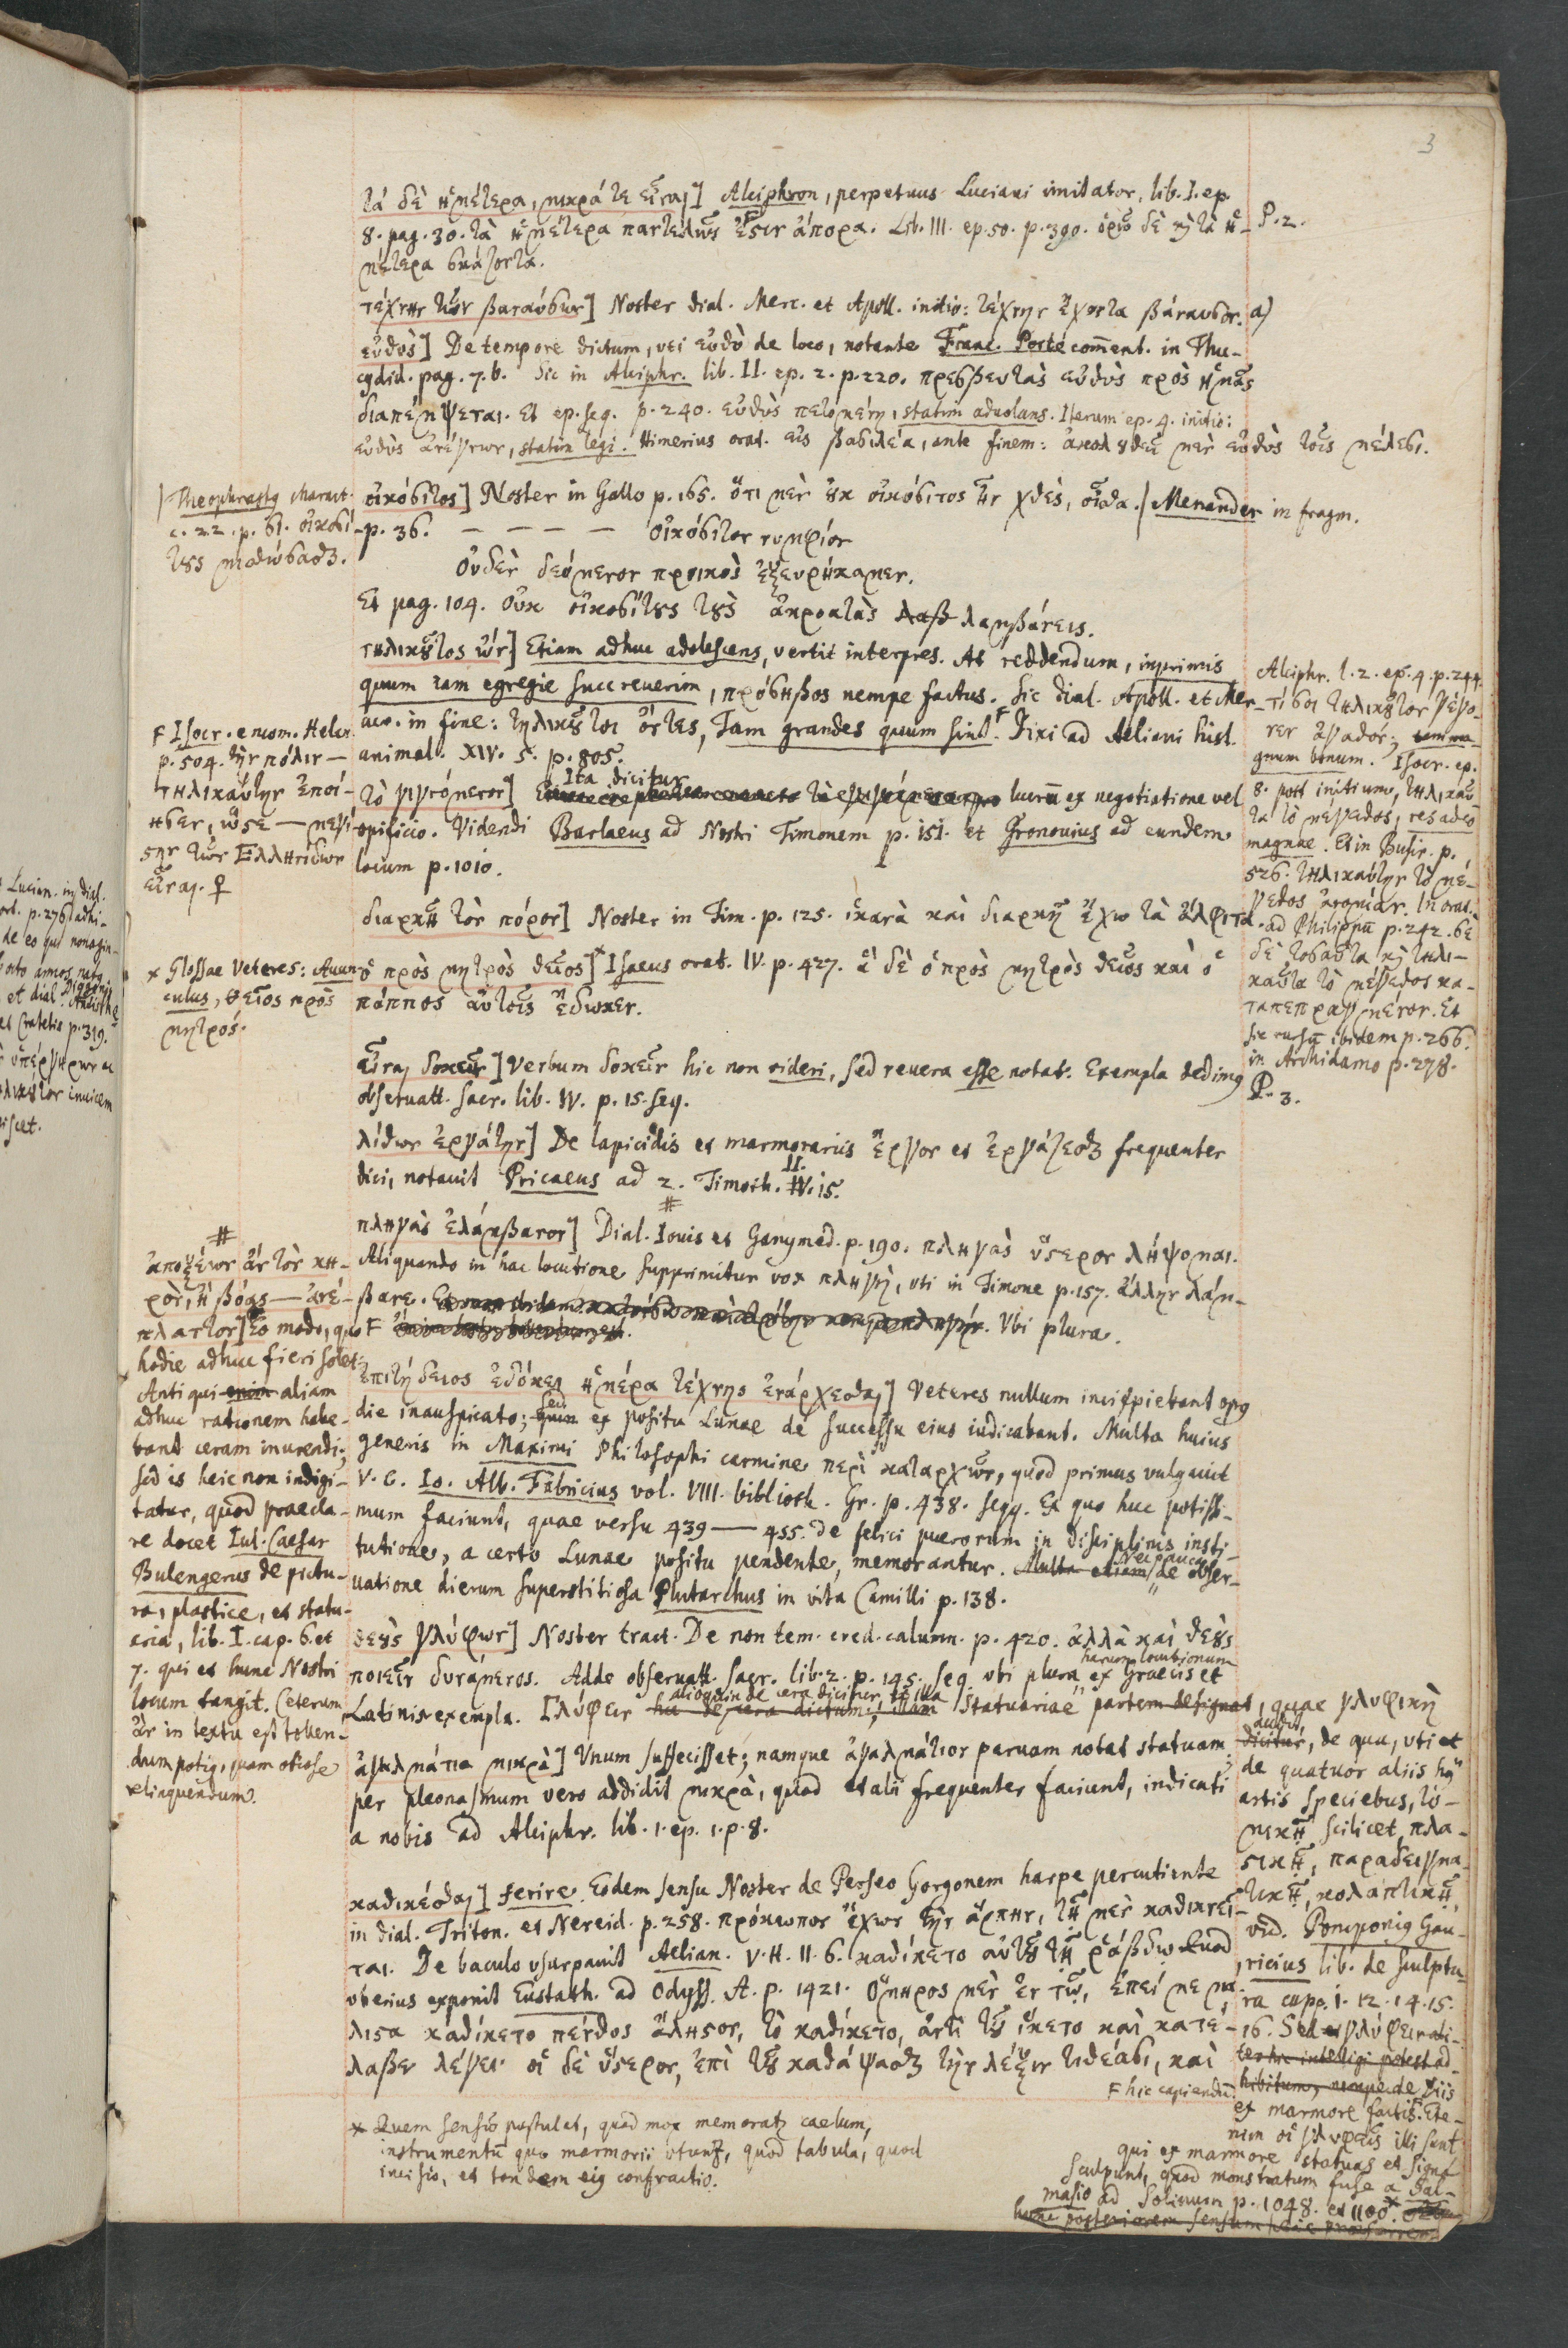 3
τὰ δὲ ἡμέτερα, μικρά τε εἶναι] Alciphron, perpetuus Luciani imitator, lib. I. ep.
8. pag. 30. τὰ ἡμέτερα παντελῶς ἐστιν ἄπορα. Lib. III. ep. 50. p. 390. ὁρῶ δὲ καὶ τὰ ἡ-
μέτερα σκάζοντα.
P. 2.
τέχνην τῶν βαναύσων] Noster dial. Merc. et Apoll. initio: τέχνην ἔχοντα βάναυσον. a)
εὐθὺς] De tempore dictum, uti εὐθὺ de loco, notante Franc. Porto com̅ent. in Thu-
cydid. pag. 7. b. Sic in Alciphr. lib. II. ep. 2. p. 220. πρεσβευτὰς εὐθὺς πρὸς ἡμᾶς
διαπέμψεται. Et ep. seq. p. 240. εὐθὺς πετομένη, statim aduolans. Iterum ep. 4. initio:
εὐθὺς ἀνέγνων, statim legi. Himerius orat. εἰς βασιλέα, ante finem: ἀκολουθεῖ μὲν εὐθὺς τοῖς μέλεσι.
οἰκόσιτος] Noster in Gallo p. 165. ὅτι μὲν οὐκ οἰκόσιτος ἦν χθὲς, οἶδα. / Menander in fragm.
p. 36. — — — — — οἰκόσιτον νυμφίον
Οὐδὲν δεόμενον προικὸς ἐξευρήκαμεν.
Et pag. 104. οὐκ οἰκοσίτους τοὺς ἀκροατὰς λαβ λαμβάνεις.
/ Theophrastus charact.
c. 22. p. 61. οἰκοσί-
τους μισθώσασθαι.
τηλικοῦτος ὢν] Etiam adhuc adolescens, vertit interpres. At reddendum, inprimis
quum tam egregie succreuerim, πρόσηβος nempe factus. Sic dial. Apoll. et Mer-
curii in fine: τηλικοῦτοι ὄντες, Tam grandes quum sint. F Dixi ad Aeliani hist.
animal. XIV. 5. p. 805.
F Isocr. encom. Helen.
p. 504. τὴν πόλιν —
τηλικαύτην ἐποί-
ησεν, ὥστε — μεγί-
στην τῶν Ἑλληνίδων
εἶναι. ♀
Alciphr. l. 2. ep. 4. p. 244.
τί σοι τηλικοῦτον γέγο-
νεν ἀγαθὸν; tam ma-
gnum bonum. Isocr. ep.
8. post initium, τηλικαῦ-
τα τὸ μέγεθος, res adeo
magnae. Et in Busir. p.
526. τηλικαύτην τὸ μέ-
γεθος ἀνομίαν. In orat.
ad Philippū p. 242. σὲ
δὲ τοσαῦτα καὶ τηλι-
καῦτα τὸ μέγεθος κα-
ταπεπραγμένον. Et
sic rursū ibidem p. 266.
in Archidamo p. 278.
P. 3.
τὸ γιγνόμενον] Ita dicitur lucrū ex negotiatione vel
opificio. Videndi Barlaeus ad Nostri Timonem p. 151. et Gronouius ad eundem
locum p. 1010.
διαρκῆ τὸν πόρον] Noster in Tim. p. 125. ἱκανὰ καὶ διαρκῆ ἔχω τὰ ἄλφιτα.
ὁ πρὸς μητρὸς θεῖος] * Isaeus orat. IV. p. 427. ἃ δὲ ὁ πρὸς μητρὸς θεῖος καὶ ὁ
πάππος αὐτοῖς ἔδωκεν.
* Glossae Veteres: Auun-
culus, θεῖος πρὸς
μητρός.
εἶναι δοκεῖν] Verbum δοκεῖν hic non videri, sed reuera esse notat. Exempla dedimus
obseruatt. sacr. lib. IV. p. 15. seq.
λίθων ἐργάτην] De lapicidis et marmorariis ἔργον et ἐργάζεσθαι frequenter
dici, notauit Pricaeus ad 2. Timoth. II. 15.
#
πληγὰς ἐλάμβανον] Dial. Iouis et Ganymed. p. 190. πληγὰς ὕστερον λήψομαι.
Aliquando in hac locutione supprimitur vox πληγὴ, uti in Timone p. 157. ἄλλην λάμ-
βανε. Vbi plura.
#
ἀποξέων ἂν τὸν κη-
ρὸν, ἢ βόας — ἀνέ-
πλαττον] Eo modo, quo
hodie adhuc fieri solet.
Antiqui enim aliam
adhuc rationem habe-
bant ceram inurendi;
sed is heic non indigi-
tatur, quod praecla-
re docet Iul. Caesar
Bulengerus de pictu-
ra, plastice, et statu-
aria, lib. I. cap. 6. et
7. qui et hunc Nostri
locum tangit. Ceterum
ἂν in textu est tollen-
dum potius, quam otiose
relinquendum.
ἐπιτήδειος ἐδόκει ἡμέρα τέχνης ἐνάρχεσθαι] Veteres nullum incipiebant opus
die inauspicato; sed ex positu Lunae de successu eius iudicabant. Multa huius
generis in Maximi Philosophi carmine περὶ καταρχῶν, quod primus vulgauit
V. C. Io. Alb. Fabricius vol. VIII. biblioth. Gr. p. 438. seqq. Ex quo huc potissi-
mum faciunt, quae versu 439 — 455. de felici puerorum in disciplinis insti-
tutione, a certo Lunae positu pendente, memorantur. Multa etiam Nec pauca de obser-
uatione dierum superstitiosa Plutarchus in vita Camilli p. 138.
θεοὺς γλύφων] Noster tract. De non tem. cred. calumn. p. 420. ἀλλὰ καὶ θεοὺς
ποιεῖν δυνάμενος. Adde obseruatt. sacr. lib. 2. p. 145. seq. ubi plura harum locutionum ex Graecis et
Latinis exempla. Γλύφειν alioquin de cera dicitur, statuariae partem designat, quae γλυφικὴ
dicitur, de qua, uti et
de quatuor aliis huius
artis speciebus, το-
μικῇ scilicet, πλα-
στικῇ, παραδειγμα-
τικῇ, κολαπτικῇ,
vid. Pomponius Gau-
ricius lib. de sculptu-
ra capp. 1. 12. 14. 15.
16. Sed γλύφειν
hic capiendū de Diis
ex marmore factis. Ete-
nim οἱ γλυφεῖς illi sunt
qui ex marmore statuas et signa
sculpunt, quod monstratum fuse a Sal-
masio ad Solinum p. 1048. et 1100. *
hunc posteriorem sensum heic
ἀγαλμάτια μικρὰ] Vnum suffecisset; namque ἀγαλμάτιον paruam notat statuam;
per pleonasmum vero addidit μικρὰ, quod et alii frequenter faciunt, indicati
a nobis ad Alciphr. lib. 1. ep. 1. p. 8.
καθικέσθαι] Ferire. Eodem sensu Noster de Perseo Gorgonem harpe percutiente
in dial. Triton. et Nereid. p. 258. πρόκωπον ἔχων τὴν ἅρπην, τῇ μὲν καθικνεῖ-
ται. De baculo usurpauit Aelian. V. H. II. 6. καθίκετο αὐτοῦ τῇ ῥάβδῳ. Quod
uberius exponit Eustath. ad Odyss. A. p. 1421. Ὅμηρος μὲν ἐν τῷ, ἐπεί με μά-
λιστα καθίκετο πένθος ἄλαστον, τὸ καθίκετο, ἀντὶ τοῦ ἵκετο καὶ κατέ-
λαβεν λέγει· οἱ δὲ ὕστερον, ἐπὶ τοῦ καθάψασθαι τὴν λέξιν τιθέασι, καὶ
* Quem sensū postulat, quod mox memoratur caelum,
instrumentū quo marmorii utuntur, quod tabula, quod
incisio, et tandem eius confractio.